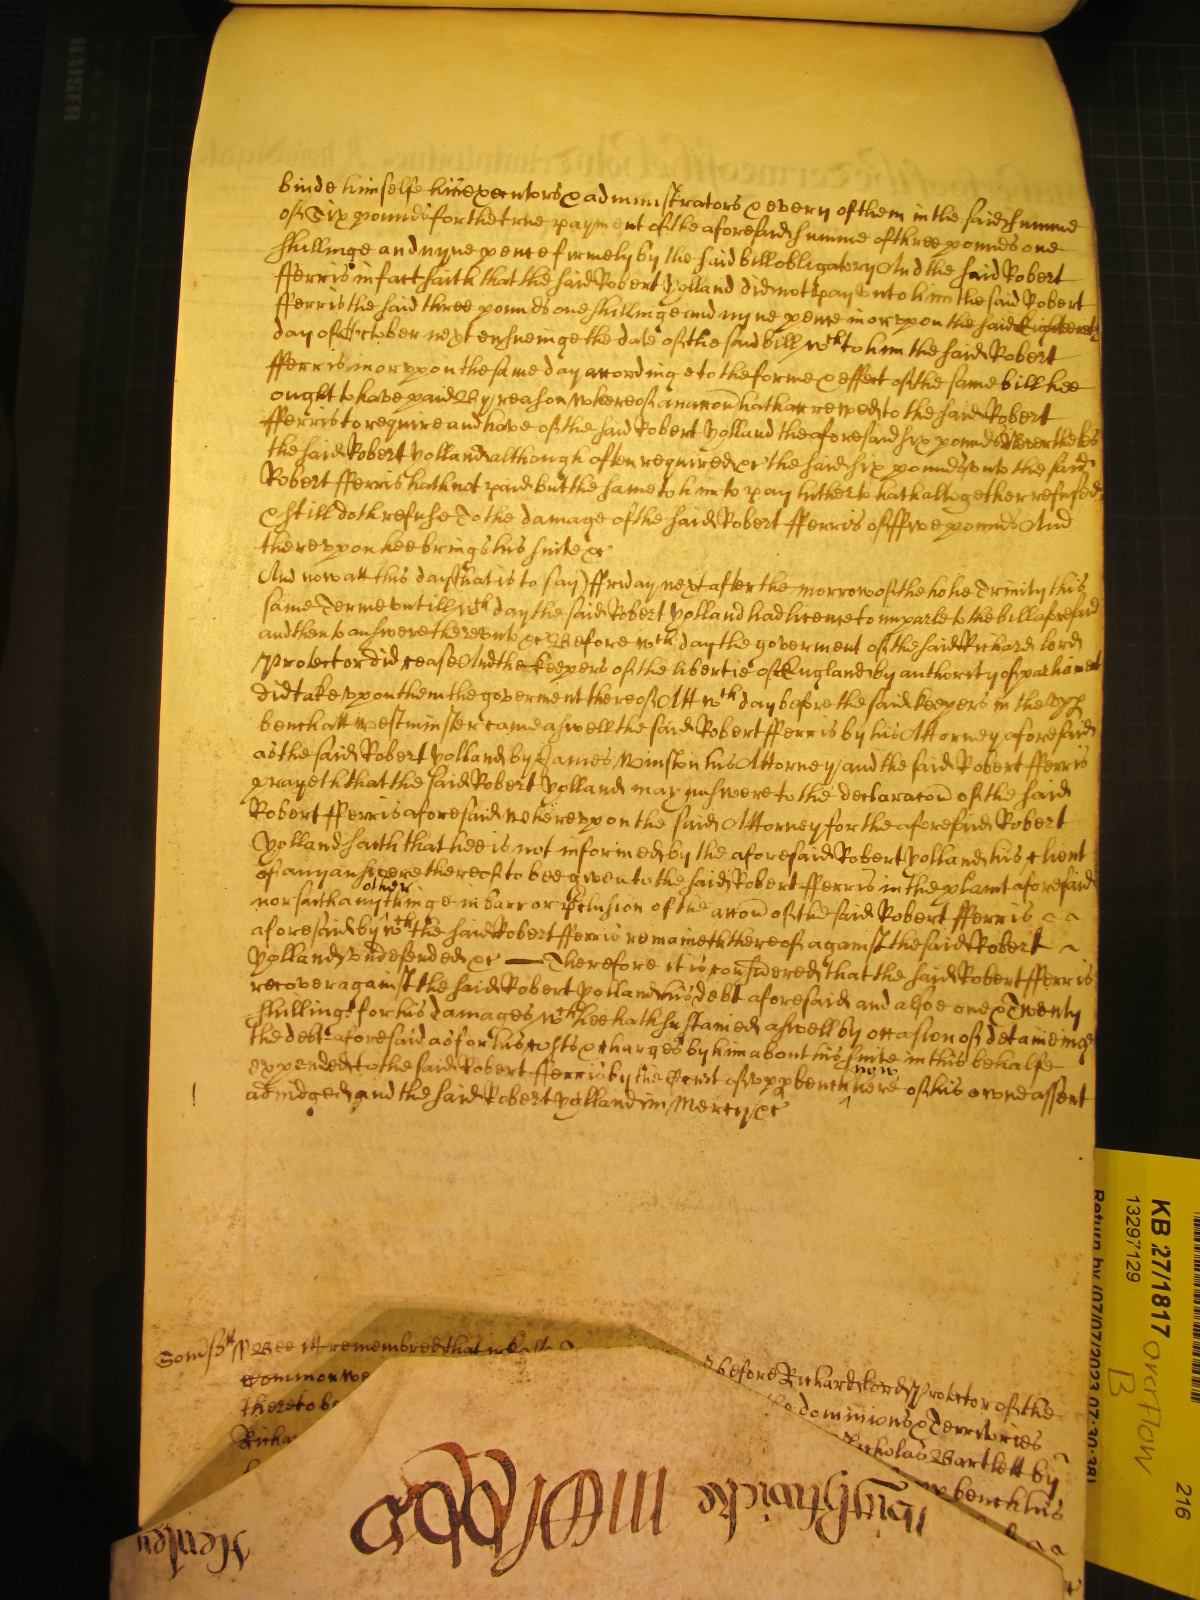 binde himselfe his executors & administrators & every of them in the said summe
of Six pounds for the true payment of the aforesaid summe of three pounds one
shillinge and nyne pence firmely by the said bill obligatory And the said Robert
fferris in fact saith that the said Robert Yolland did not pay unto him the said Robert
fferris the said three pounds one shillinge and nyne pence in or upon the said Eighteenth
day of October next ensueinge the date of the said bill wch to him the said Robert
fferris in or upon the same day accordinge to the forme & effect of the same bill hee
ought to have paid By reason whereof an accon hath accrewed to the said Robert
fferris to require and have of the said Robert Yolland the aforesaid six pounds Nevertheles
the said Robert Yolland although often required &c the said six pounds unto the said
Robert fferris hath not paid but the same to him to pay hitherto hath altogether refused
& still doth refuse To the damage of the said Robert fferris of ffive pounds And
thereupon hee brings his suite &c
And now att this day (that is to say) ffriday next after the morrow of the holie Trinity this
same Terme untill wch day the said Robert Yolland had licence to imparle to the bill aforesaid
and then to answere thereunto &c Before wch day the goverment of the said Richard lord
Protector did cease And the keepers of the libertie of England by authority of parliament
did take upon them the goverment thereof Att wch day before the said keepers in the upp
bench att westminster came aswell the said Robert fferris by his Attorney aforesaid
as the said Robert Yolland by James Winston his Attorney and the said Robert fferris
prayeth that the said Robert Yolland may answere to the declaracon of the said
Robert fferris aforesaid whereupon the said Attorney for the aforesaid Robert
Yolland saith that hee is not informed by the aforesaid Robert Yolland his client
of any answere thereof to bee given to the said Robert fferris in the plaint aforesaid
other
nor saith any thinge in barr or preclusion of the accon of the said Robert fferris
aforesaid by wch the said Robert fferris remaineth thereof against the said Robert
Yolland undefended &c — Therefore it is considered that the said Robert fferris
recover against the said Robert Yolland his debt aforesaid and alsoe one & Twenty
shillings for his damages wch hee hath sustained aswell by occasion of detaineinge
the debt aforesaid as for his costs & charges by him about his suite in this behalfe
now
expended to the said Robert fferris by the Court of upp bench here of his owne assent
adiudged and the said Robert Yolland in Mercy &c
Somsett Bee itt remembred that
before Richard lord Protector of the
Common we
dominions & Territories
theretobe
Nicholas Bartlett by
Richa
upp bench his
Henley
KB 27/1817 overflow
B
13297129
Return by (07/07/2023 07:30:38)
216